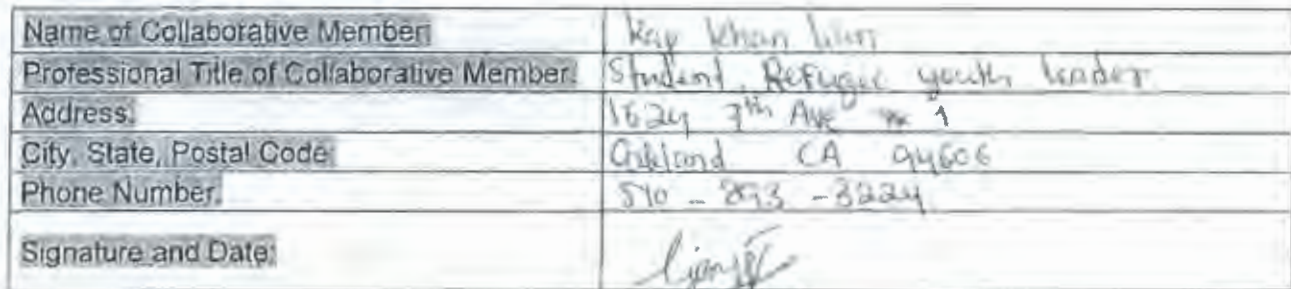 Name of Collaborative Member: Kap Khan
Professional Title of Collaborative Member: Student, Refugee youth leader
Address: 1624 7th Ave # 1
City, State, Postal Code: Oakland CA 94606
Phone Number: 510 - 893 - 3224
Signature and Date: